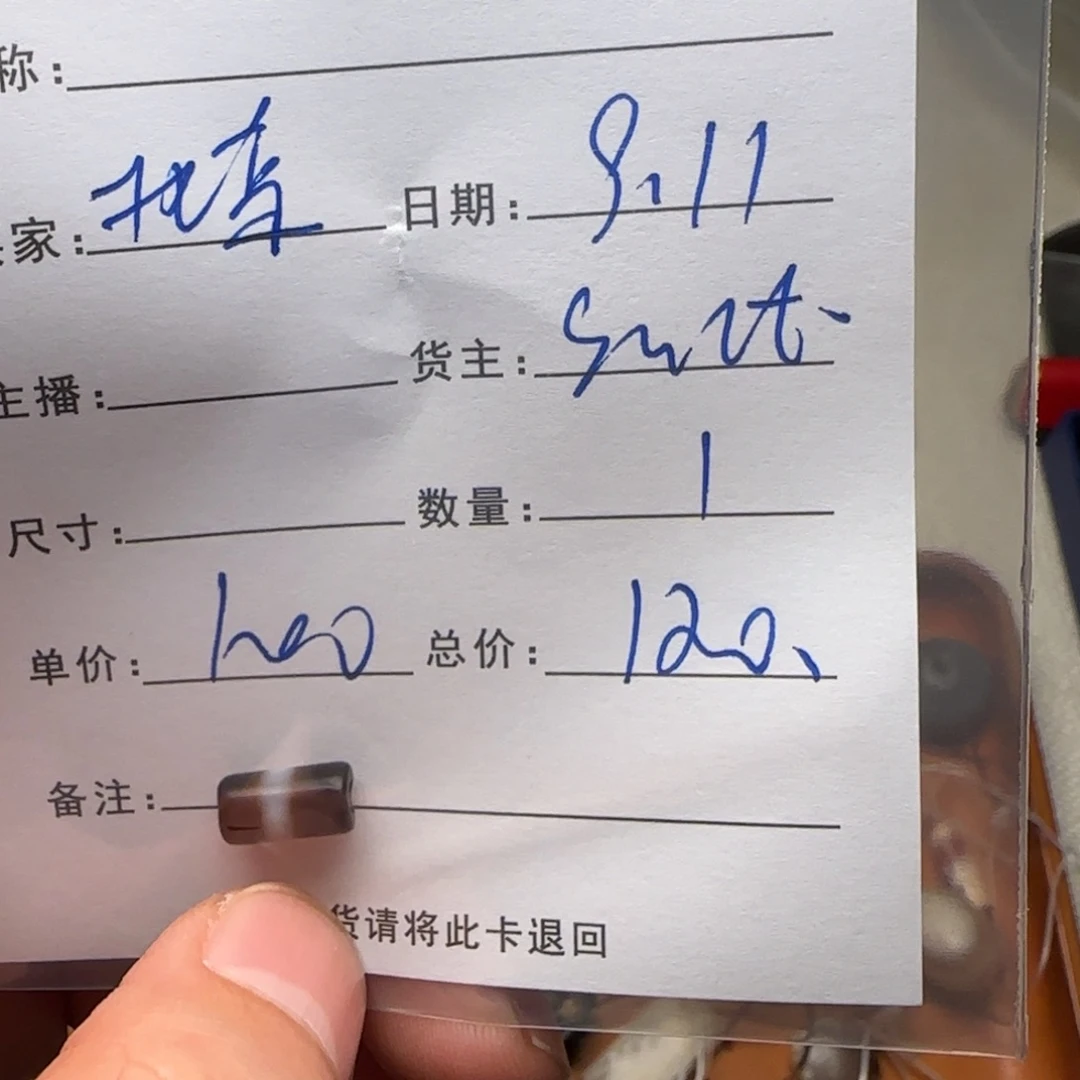 称：
家： 日期：9.11
主播： 货主：
尺寸： 数量：1
单价： 总价：120、
备注：
货请将此卡退回